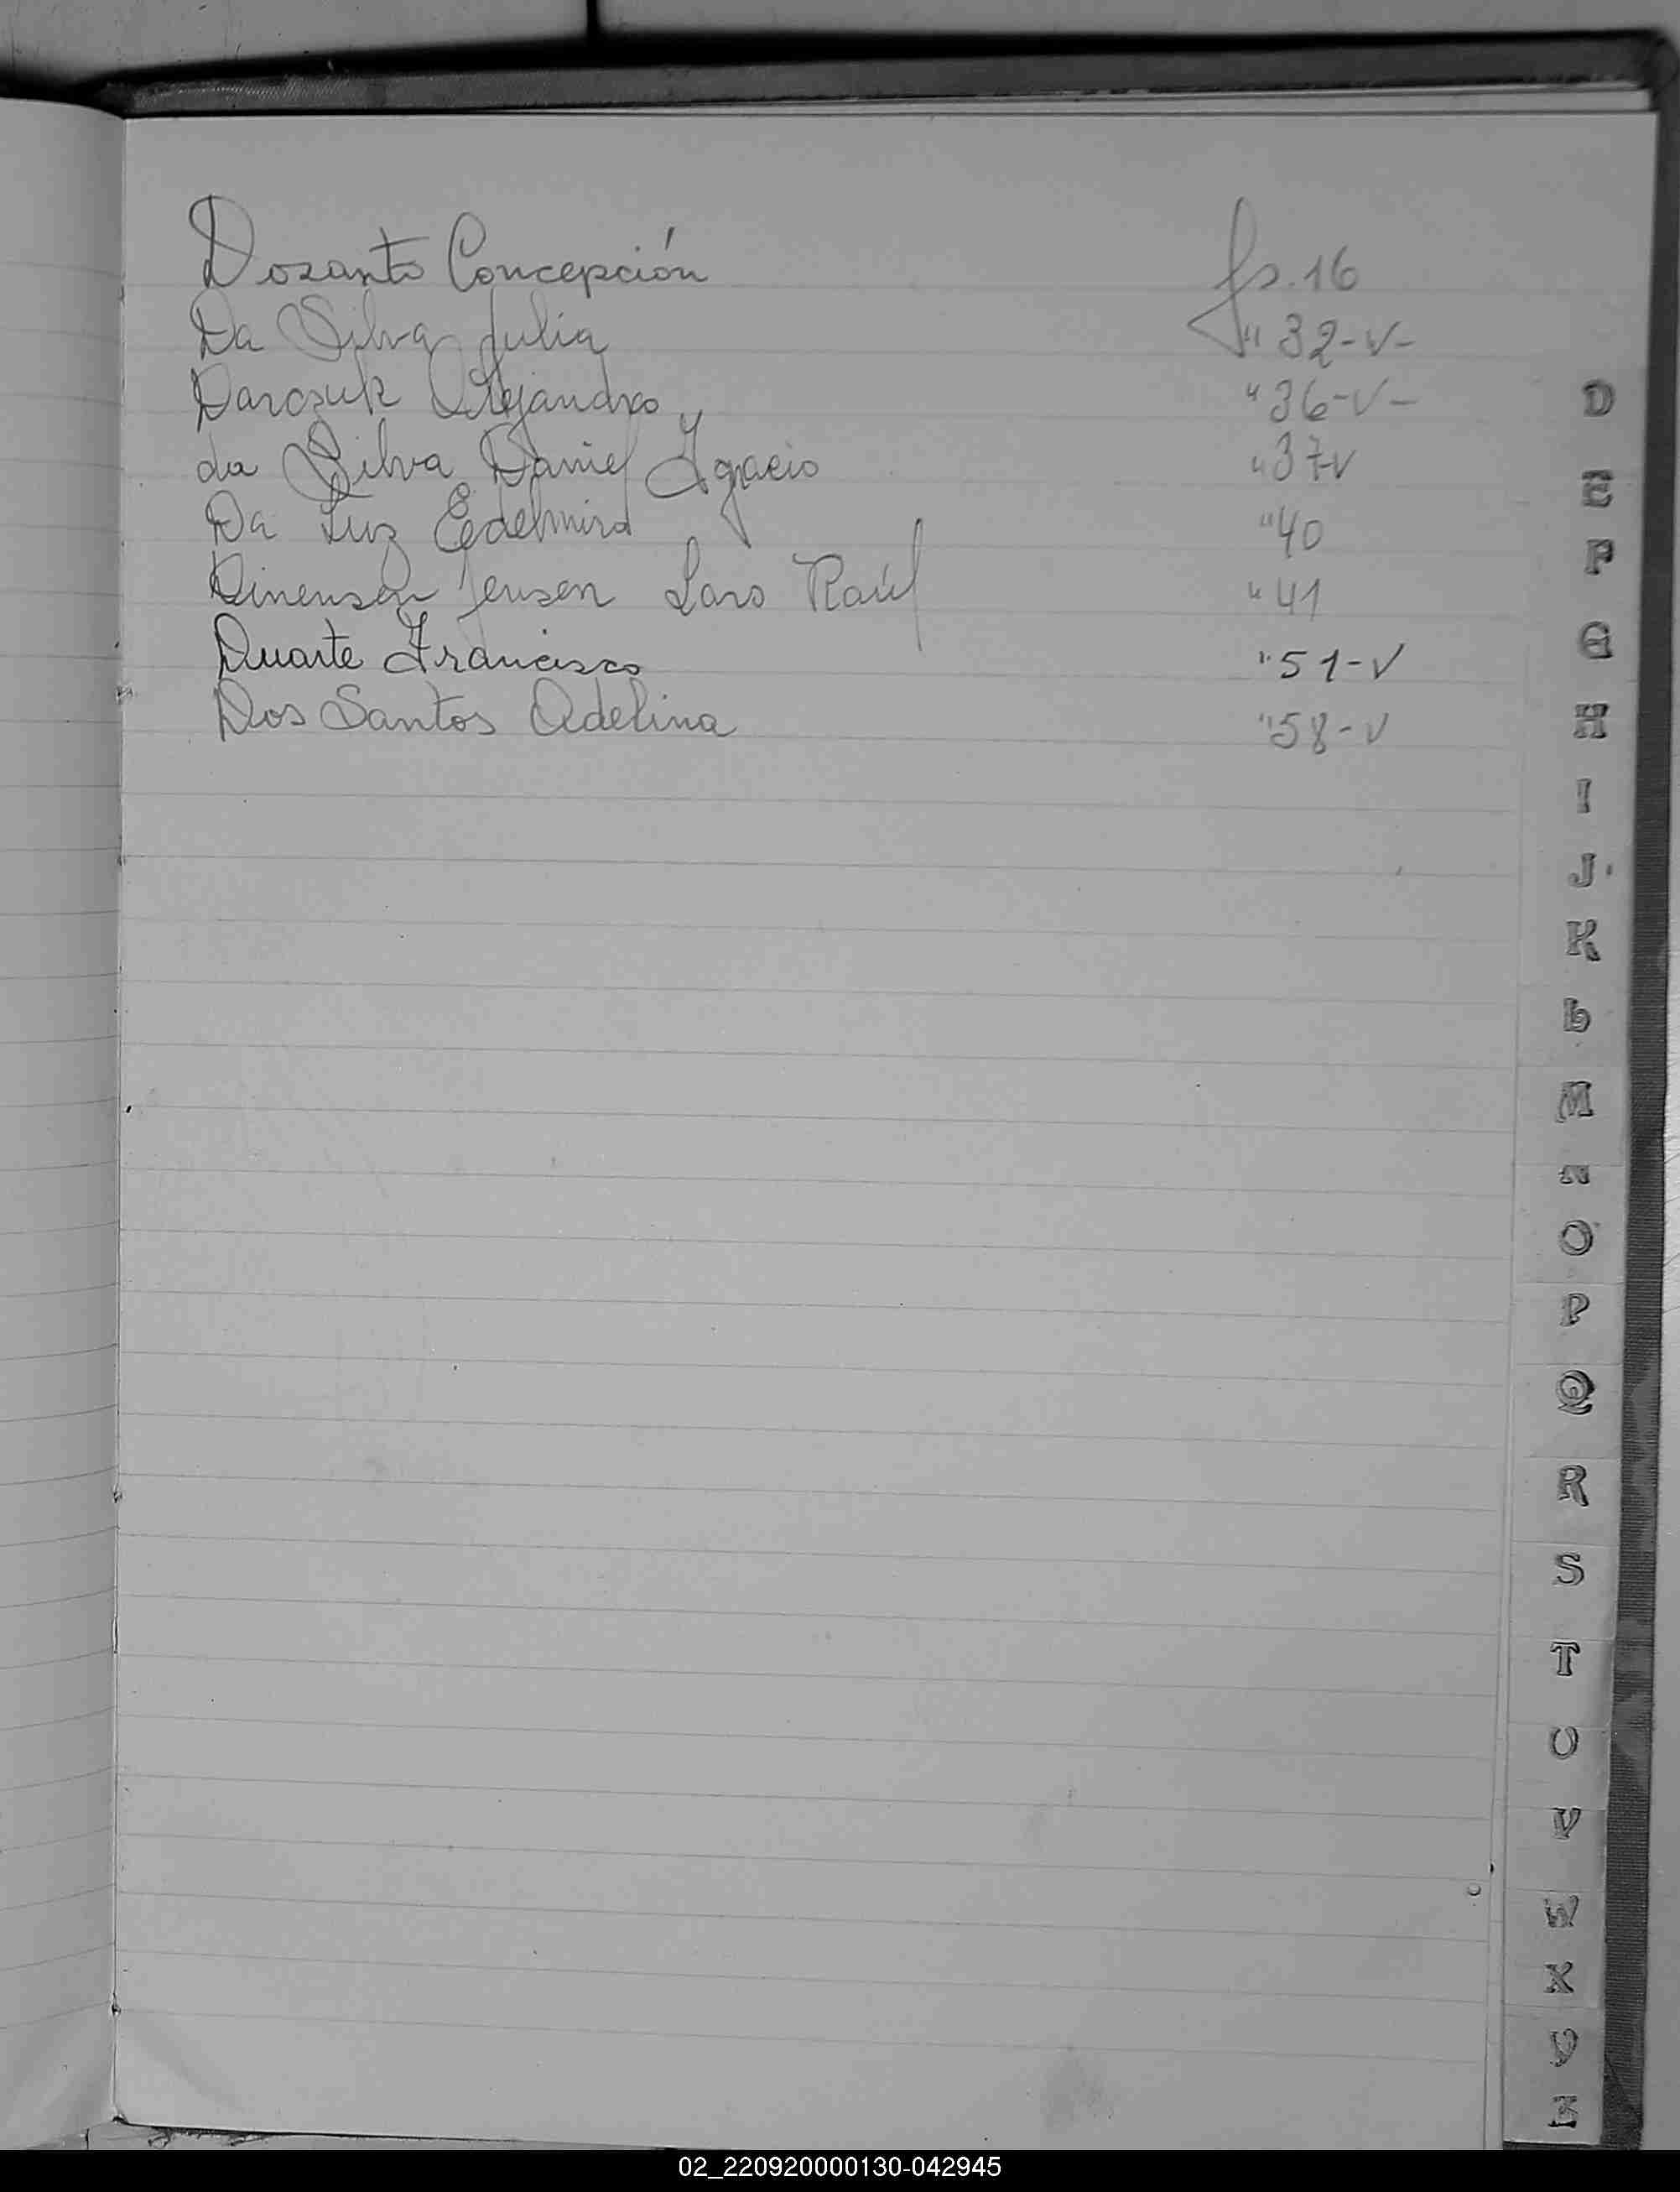 Dosanto Concepción fs. 16
Da Silva Julia " 32-v-
Darczuk Alejandro " 36-v-
da Silva Daniel Ignacio " 37v
Da Luz Edelmira " 40
Dinensen Jensen Lars Raúl " 41
Duarte Francisco " 51-v
Dos Santos Adelina " 58-v
D
E
F
G
H
I
J
K
L
M
N
O
P
Q
R
S
T
U
V
W
X
Y
Z
02_220920000130-042945